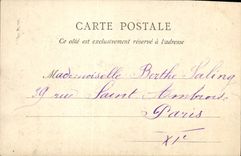 CARTE POSTALE
Ce côté est exclusivement réservé à l'adresse
Mademoiselle Berthe Saling
9 rue Saint Ambroise
Paris
XIe